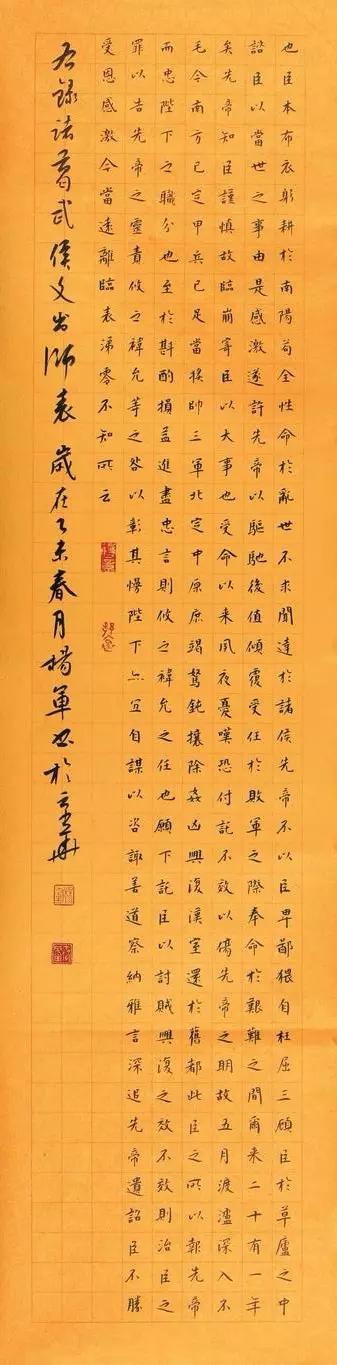 也臣本布衣躬耕於南陽苟全性命於亂世不求聞達於諸侯先帝不以臣卑鄙猥自枉屈三顧臣於草廬之中
諮臣以當世之事由是感激遂許先帝以驅馳後值傾覆受任於敗軍之際奉命於艱難之間爾来二十有一年
矣先帝知臣謹慎故臨崩寄臣以大事也受命以来夙夜憂嘆恐付託不效以傷先帝之明故五月渡瀘深入不
毛今南方已定甲兵已足當獎帥三軍北定中原庶竭駑鈍攘除姦凶興復漢室還於舊都此臣之所以報先帝
而忠陛下之職分也至於斟酌損益進盡忠言則攸之禕允之任也願下託臣以討賊興復之效不效則治臣之
罪以告先帝之靈責攸之禕允等之咎以彰其慢陛下亦宜自謀以咨諏善道察納雅言深追先帝遺詔臣不勝
受恩感激今當遠離臨表涕零不知所云
右錄諸葛武侯文出師表歲在乙未春月楊軍書於華